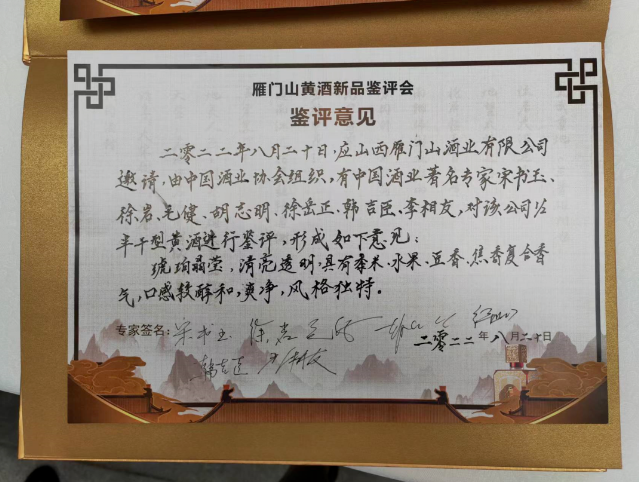 雁门山黄酒新品鉴评会
鉴评意见
二零二二年八月二十日,应山西雁门山酒业有限公司
邀请,由中国酒业协会组织,有中国酒业著名专家宋书玉、
徐岩、毛健、胡志明、徐岳正、韩吉臣、李相友,对该公司
半干型黄酒进行鉴评,形成如下意见:
琥珀晶莹,清亮透明,具有黍米、水果、豆香、焦香复合香
气,口感较醇和,爽净,风格独特。
专家签名: 宋书玉 徐岩 毛健
二零二二年八月二十日